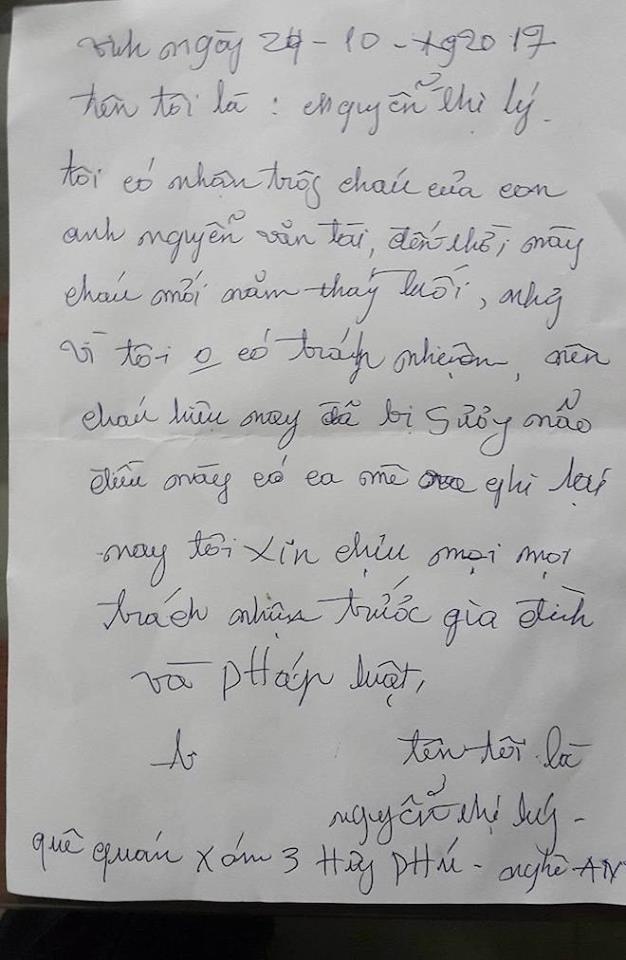 vinh ngày 24-10-2017
tên tôi là : Nguyễn thị lý.
tôi có nhận trôg cháu của con
anh nguyễn văn tài, đến thời này
cháu mới năm tháy tuổi, nhg
vì tôi o có tráh nhiệm, nên
cháu hiệu nay đã bị Sưởy não
điều này có ca mê ghi lại
nay tôi xin chịu mọi mọi
trách nhiệm trước gia đình
và pHáp luật,
tên tôi là
nguyễn thị lý -
quê quán Xóm 3 PHú - nghê AN